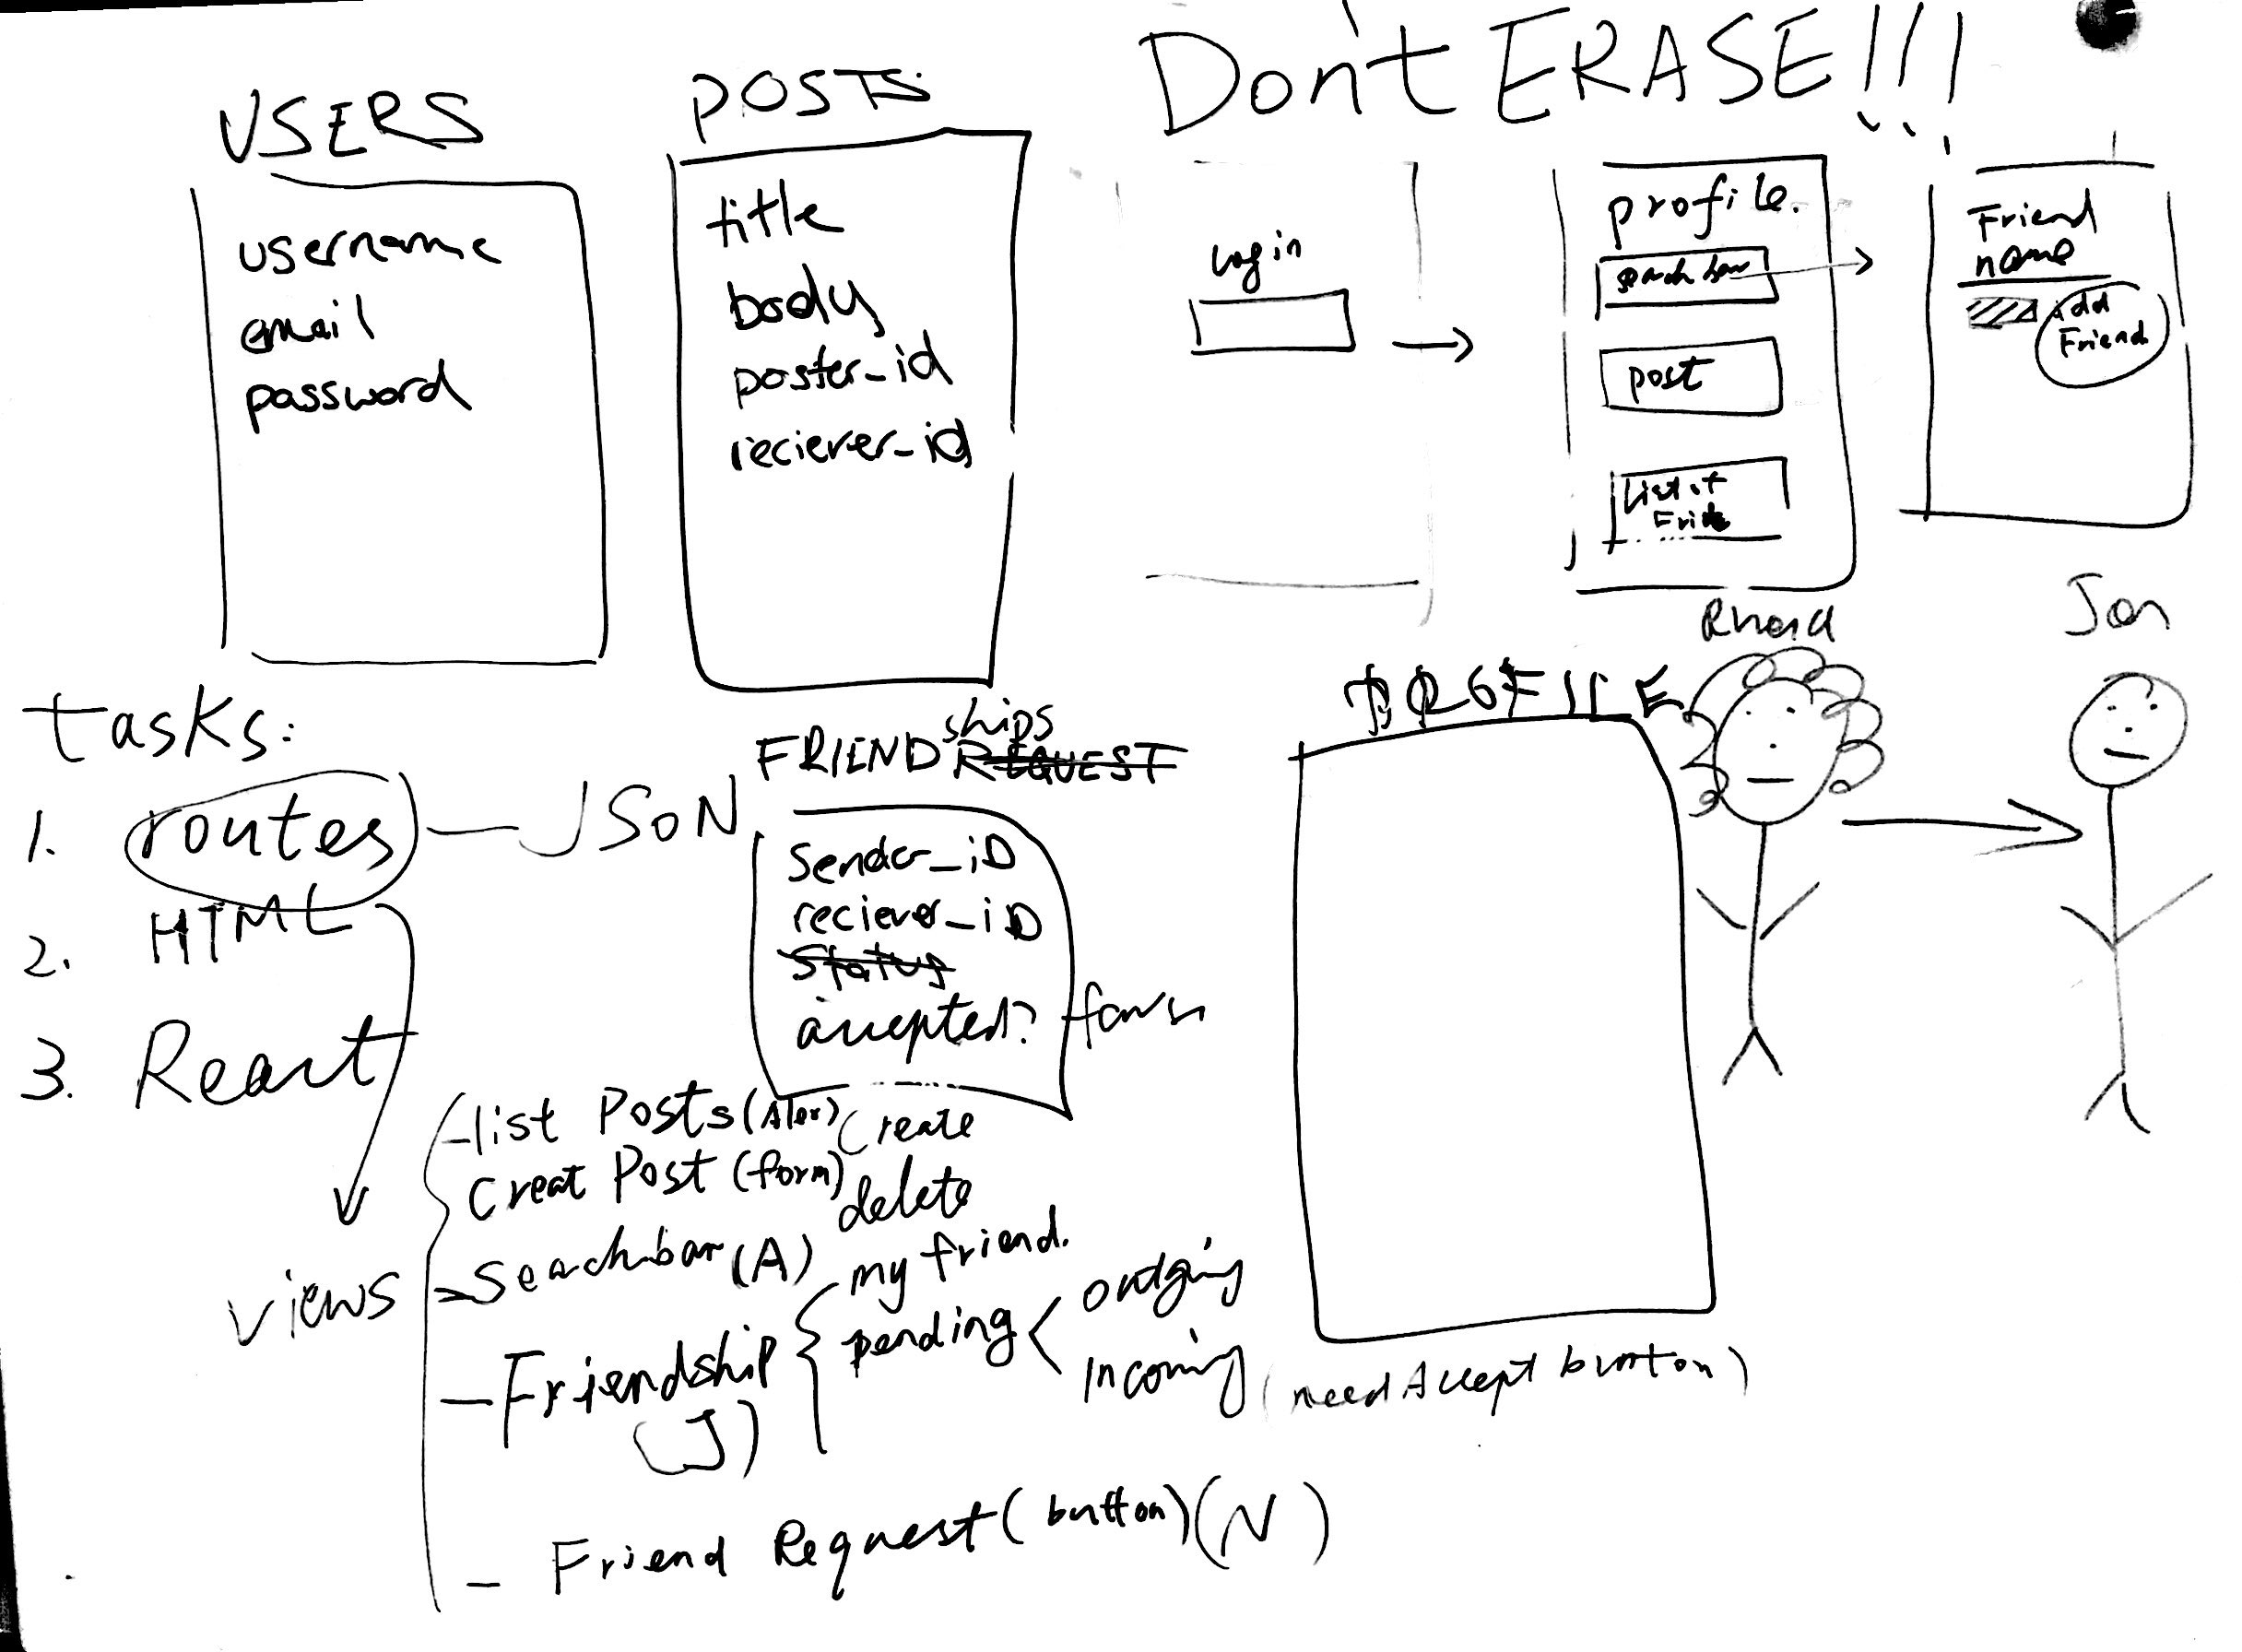 Don't ERASE!!!
USERS
username
email
password
POSTS
title
body
poster_id
reciever_id
login
profile.
search bar
post
List of
Friend
name
Add
Friend
Jon
PROFILE
tasks:
1. routes — JSON
2. HTML
3. React
FRIENDships REQUEST
Sender_iD
reciever_iD
status
accepted?
views
- list Posts (Alex) Create
Creat Post (form) delete
- Search bar (A)
- Friendship
(J)
my friend.
pending < outgoing
Incoming (need Accept button)
- Friend Request (button) (N)